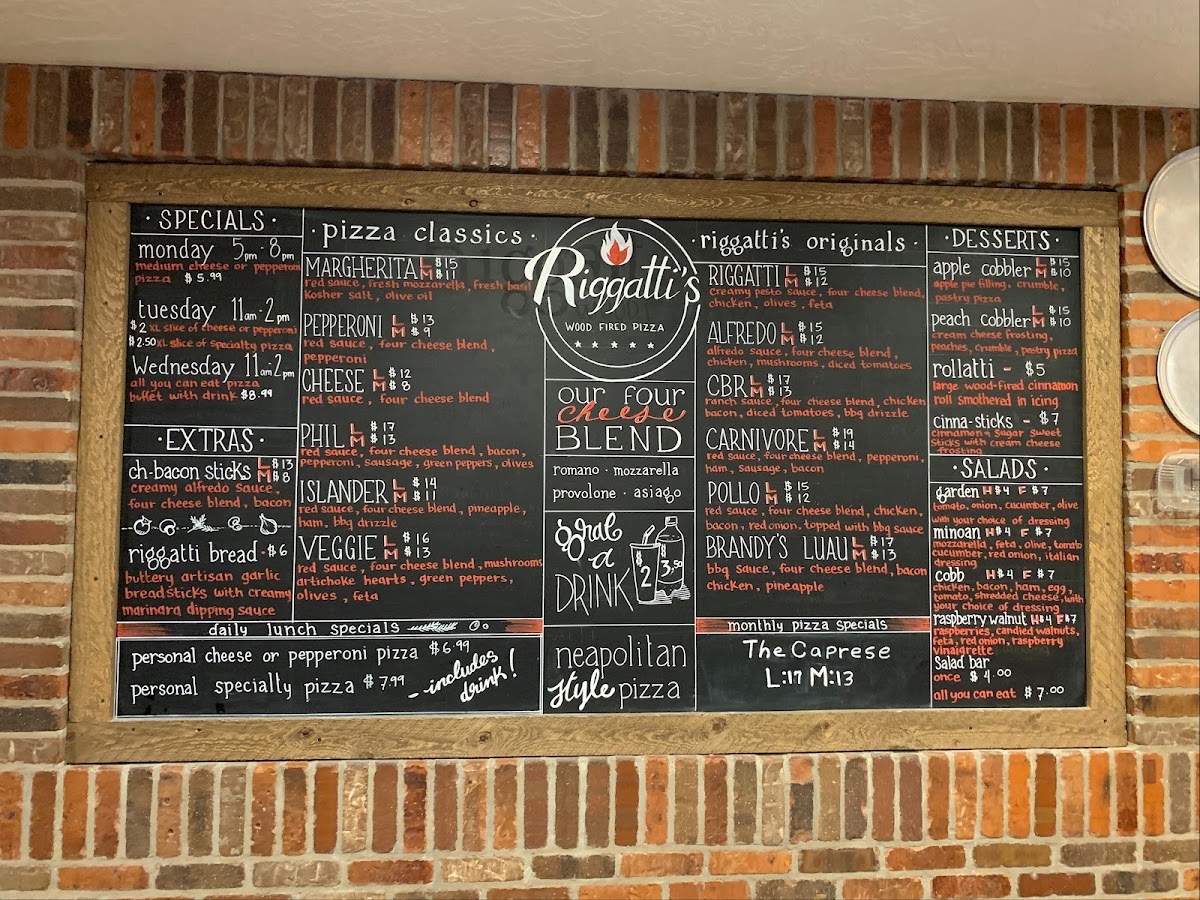 · SPECIALS ·
monday 5pm-8pm
medium cheese or pepperoni
pizza $5.99
tuesday 11am-2pm
$2 XL slice of cheese or pepperoni
$2.50 XL slice of specialty pizza
Wednesday 11am-2pm
all you can eat pizza
buffet with drink $8.99
· EXTRAS ·
ch-bacon sticks L $13
M $8
creamy alfredo sauce,
four cheese blend, bacon
riggatti bread · $6
buttery artisan garlic
breadsticks with creamy
marinara dipping sauce
· pizza classics ·
MARGHERITA L $15
M $11
red sauce, fresh mozzarella, fresh basil
Kosher salt, olive oil
PEPPERONI L $13
M $9
red sauce, four cheese blend,
pepperoni
CHEESE L $12
M $8
red sauce, four cheese blend
PHIL L $17
M $13
red sauce, four cheese blend, bacon,
pepperoni, sausage, green peppers, olives
ISLANDER L $14
M $11
red sauce, four cheese blend, pineapple,
ham, bbq drizzle
VEGGIE L $16
M $13
red sauce, four cheese blend, mushrooms
artichoke hearts, green peppers,
olives, feta
daily lunch specials
personal cheese or pepperoni pizza $6.99
personal specialty pizza $7.99
-includes
drink!
Riggatti's
WOOD FIRED PIZZA
our four
cheese
BLEND
romano · mozzarella
provolone · asiago
grab
a
DRINK
$2
$3.50
neapolitan
style pizza
· riggatti's originals ·
RIGGATTI L $15
M $12
creamy pesto sauce, four cheese blend,
chicken, olives, feta
ALFREDO L $15
M $12
alfredo sauce, four cheese blend,
chicken, mushrooms, diced tomatoes
CBR L $17
M $13
ranch sauce, four cheese blend, chicken
bacon, diced tomatoes, bbq drizzle
CARNIVORE L $19
M $14
red sauce, four cheese blend, pepperoni,
ham, sausage, bacon
POLLO L $15
M $12
red sauce, four cheese blend, chicken,
bacon, red onion, topped with bbq sauce
BRANDY'S LUAU L $17
M $13
bbq sauce, four cheese blend, bacon
chicken, pineapple
monthly pizza specials
The Caprese
L:17 M:13
· DESSERTS ·
apple cobbler L $15
M $10
apple pie filling, crumble,
pastry pizza
peach cobbler L $15
M $10
cream cheese frosting,
peaches, crumble, pastry pizza
rollatti - $5
large wood-fired cinnamon
roll smothered in icing
cinna-sticks - $7
cinnamon & sugar sweet
sticks with cream cheese
frosting
· SALADS ·
garden H $4 F $7
tomato, onion, cucumber, olive
with your choice of dressing
minoan H $4 F $7
mozzarella, feta, olive, tomato
cucumber, red onion, italian
dressing
cobb H $4 F $7
chicken, bacon, ham, egg,
tomato, shredded cheese, with
your choice of dressing
raspberry walnut H $4 F $7
raspberries, candied walnuts,
feta, red onion, raspberry
vinaigrette
Salad bar
once $4.00
all you can eat $7.00